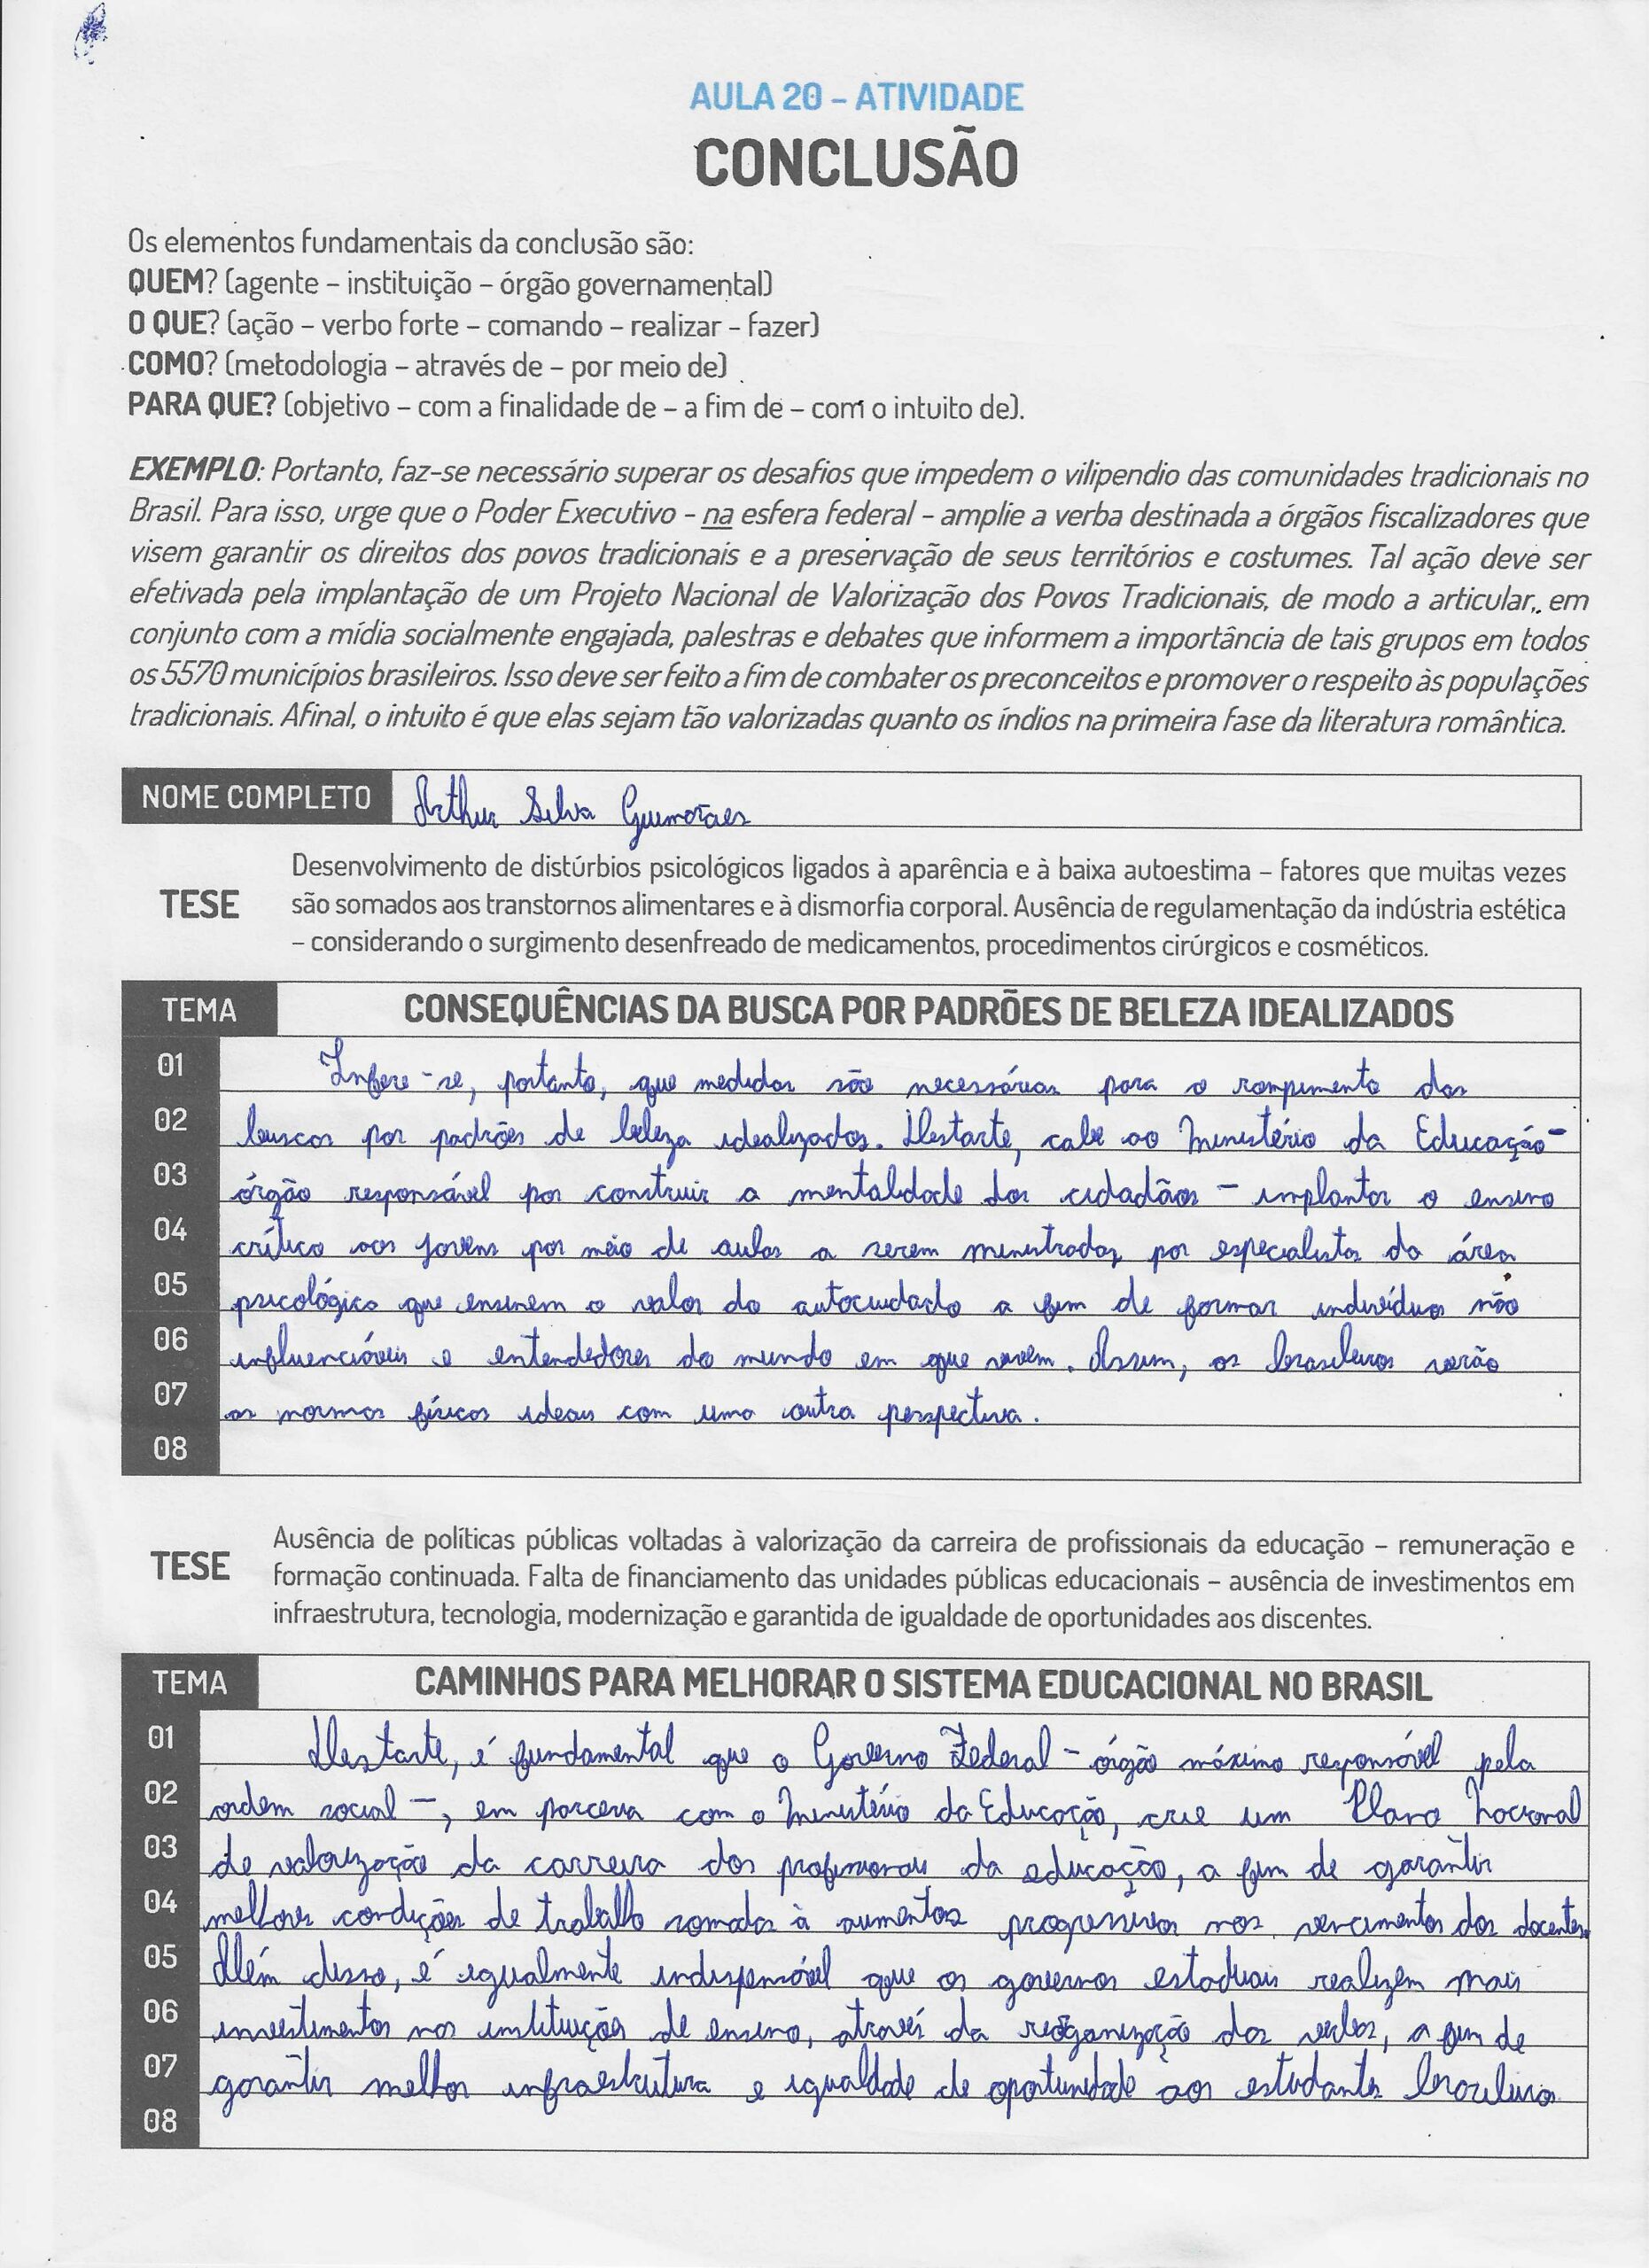 AULA 20 – ATIVIDADE
CONCLUSÃO
Os elementos fundamentais da conclusão são:
QUEM? (agente – instituição – órgão governamental)
O QUE? (ação – verbo forte – comando – realizar – fazer)
COMO? (metodologia – através de – por meio de)
PARA QUE? (objetivo – com a finalidade de – a fim de – com o intuito de).
EXEMPLO: Portanto, faz-se necessário superar os desafios que impedem o vilipendio das comunidades tradicionais no
Brasil. Para isso, urge que o Poder Executivo – na esfera federal – amplie a verba destinada a órgãos fiscalizadores que
visem garantir os direitos dos povos tradicionais e a preservação de seus territórios e costumes. Tal ação deve ser
efetivada pela implantação de um Projeto Nacional de Valorização dos Povos Tradicionais, de modo a articular, em
conjunto com a mídia socialmente engajada, palestras e debates que informem a importância de tais grupos em todos
os 5570 municípios brasileiros. Isso deve ser feito a fim de combater os preconceitos e promover o respeito às populações
tradicionais. Afinal, o intuito é que elas sejam tão valorizadas quanto os índios na primeira fase da literatura romântica.
NOME COMPLETO Arthur Silva Guimarães
Desenvolvimento de distúrbios psicológicos ligados à aparência e à baixa autoestima – fatores que muitas vezes
TESE são somados aos transtornos alimentares e à dismorfia corporal. Ausência de regulamentação da indústria estética
– considerando o surgimento desenfreado de medicamentos, procedimentos cirúrgicos e cosméticos.
TEMA CONSEQUÊNCIAS DA BUSCA POR PADRÕES DE BELEZA IDEALIZADOS
01 Infere-se, portanto, que medidas são necessárias para o rompimento das
02 buscas por padrões de beleza idealizados. Destarte, cabe ao Ministério da Educação -
03 órgão responsável por construir a mentalidade dos cidadãos - implantar o ensino
04 crítico aos jovens por meio de aulas a serem ministradas por especialistas da área
05 psicológica que ensinem o valor do autocuidado a fim de formar indivíduos não
06 influenciáveis e entendedores do mundo em que vivem. Assim, os brasileiros verão
07 as normas físicas ideais com uma outra perspectiva.
08
Ausência de políticas públicas voltadas à valorização da carreira de profissionais da educação – remuneração e
TESE formação continuada. Falta de financiamento das unidades públicas educacionais – ausência de investimentos em
infraestrutura, tecnologia, modernização e garantida de igualdade de oportunidades aos discentes.
TEMA CAMINHOS PARA MELHORAR O SISTEMA EDUCACIONAL NO BRASIL
01 Destarte, é fundamental que o Governo Federal - órgão máximo responsável pela
02 ordem social -, em parceria com o Ministério da Educação, crie um Plano Nacional
03 de valorização da carreira dos profissionais da educação, a fim de garantir
04 melhores condições de trabalho somadas à aumentos progressivos nos vencimentos dos docentes.
05 Além disso, é igualmente indispensável que os governos estaduais realizem mais
06 investimentos nas instituições de ensino, através da reorganização das verbas, a fim de
07 garantir melhor infraestrutura e igualdade de oportunidade aos estudantes brasileiros
08